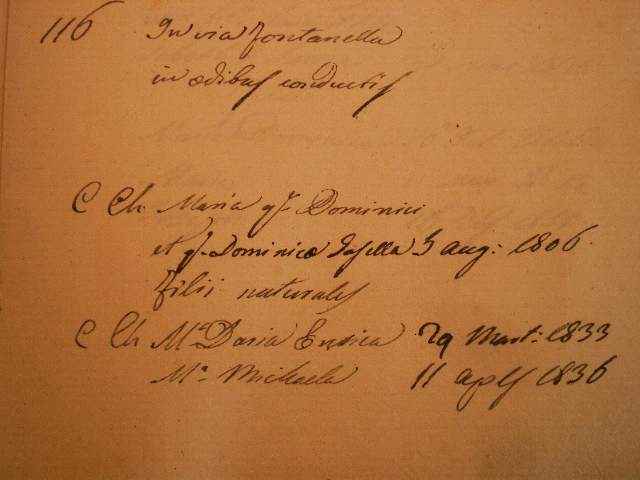 116 In via Fontanella
in ædibus conductis
C Ch Maria qm Dominici
et qm Dominicæ 5 aug: 1806.
Filii naturales
C Ch Ma Daria Enrica 29 Mart: 1833
Ma Michaela 11 aples 1836